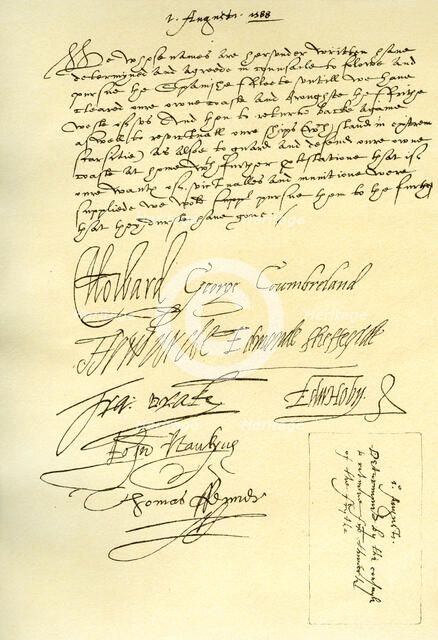 1. Auguste. 1588
We whose names are hereunder written have
determined and agreede in counsaile to folowe and
pursue the Spanishe Fleete untill we have
cleared oure owne coaste and broughte the Frithe
weste of us and then to returne backe againe
as well to revictuall oure ships (wch stand in extreme
scarsitie) as alsoe to guard and defend oure owne
coaste at home wth further protestatione that if
oure wantes of victualles and munitione were
suppliede we wold pursue them to the furthest
that they durste have gone.
C Howard George Cumbreland
T Howarde Edmonde Sheffeylde
Fra: Drake Edw Hoby
John Hawkyns
Thomas Fenner
1. Auguste.
Determined by the counsell